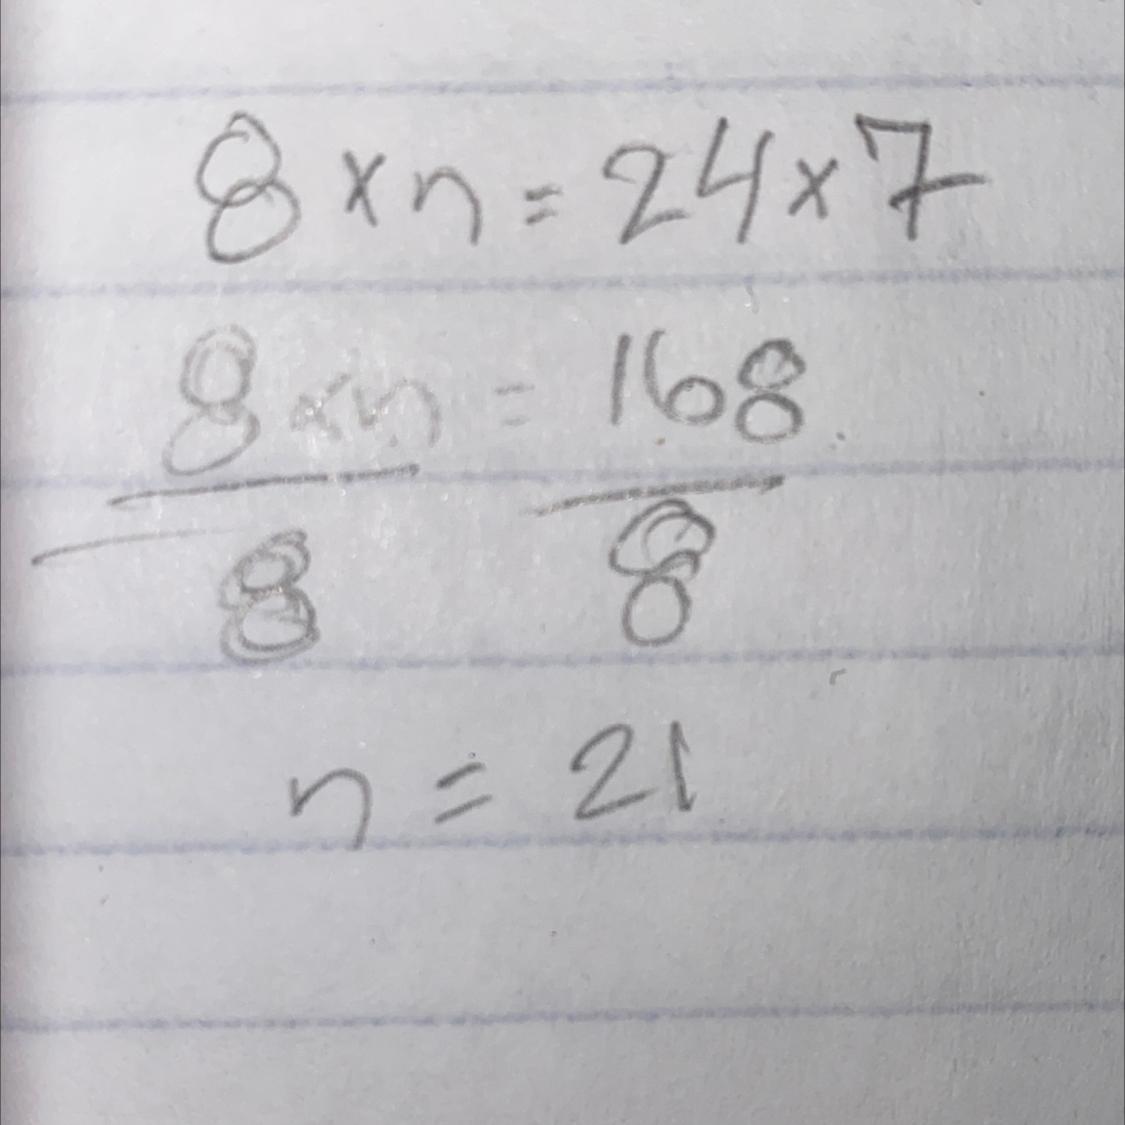 8 × n = 24 × 7
8 × n = 168
8 8
n = 21